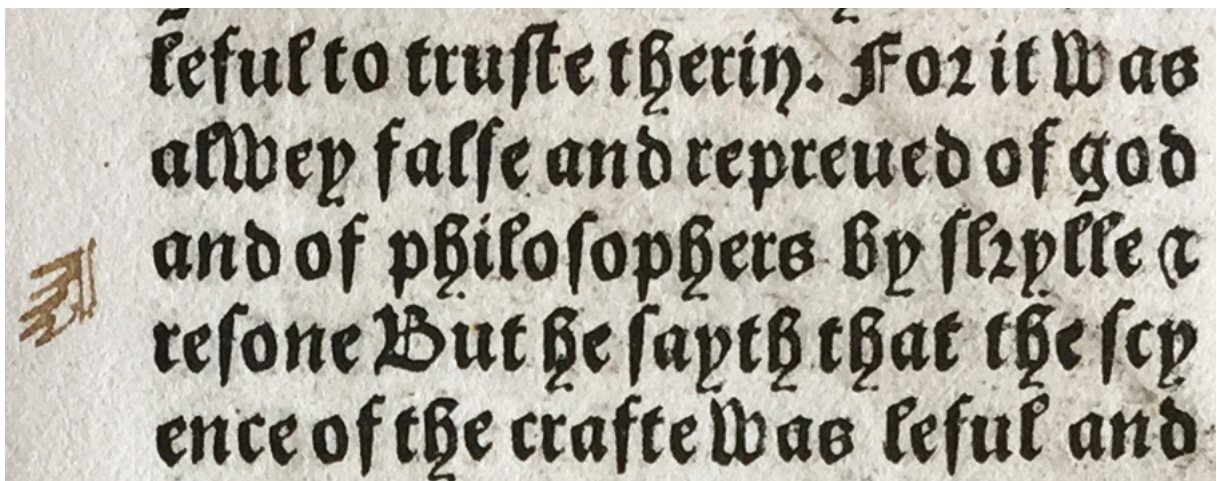 leful to truste therin. For it was
alwey false and repreued of god
and of philosophers by skylle &
resone But he sayth that the scy
ence of the crafte was leful and